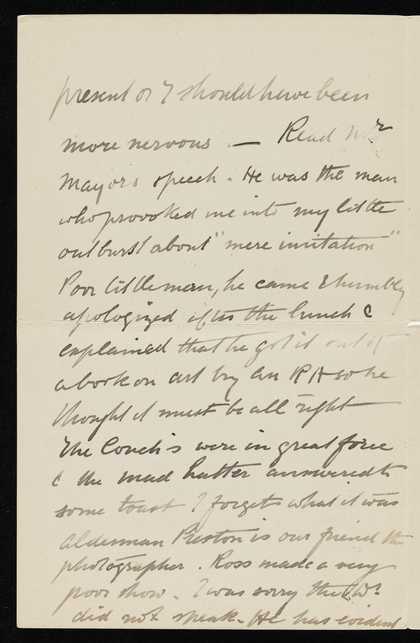 present or I should have been
more nervous. — Read Mr
Mayors speech. He was the man
who provoked me into my little
outburst about "mere imitation"
Poor little man, he came & humbly
apologized after the lunch &
explained that he got it out of
a book on art by an RA so he
thought it must be all right
The Couchs were in great force
& the mad hatter answered to
some toast I forget what it was
alderman Preston is our friend the
photographer. Ross made a very
poor show. I was sorry the
did not speak. He has evident